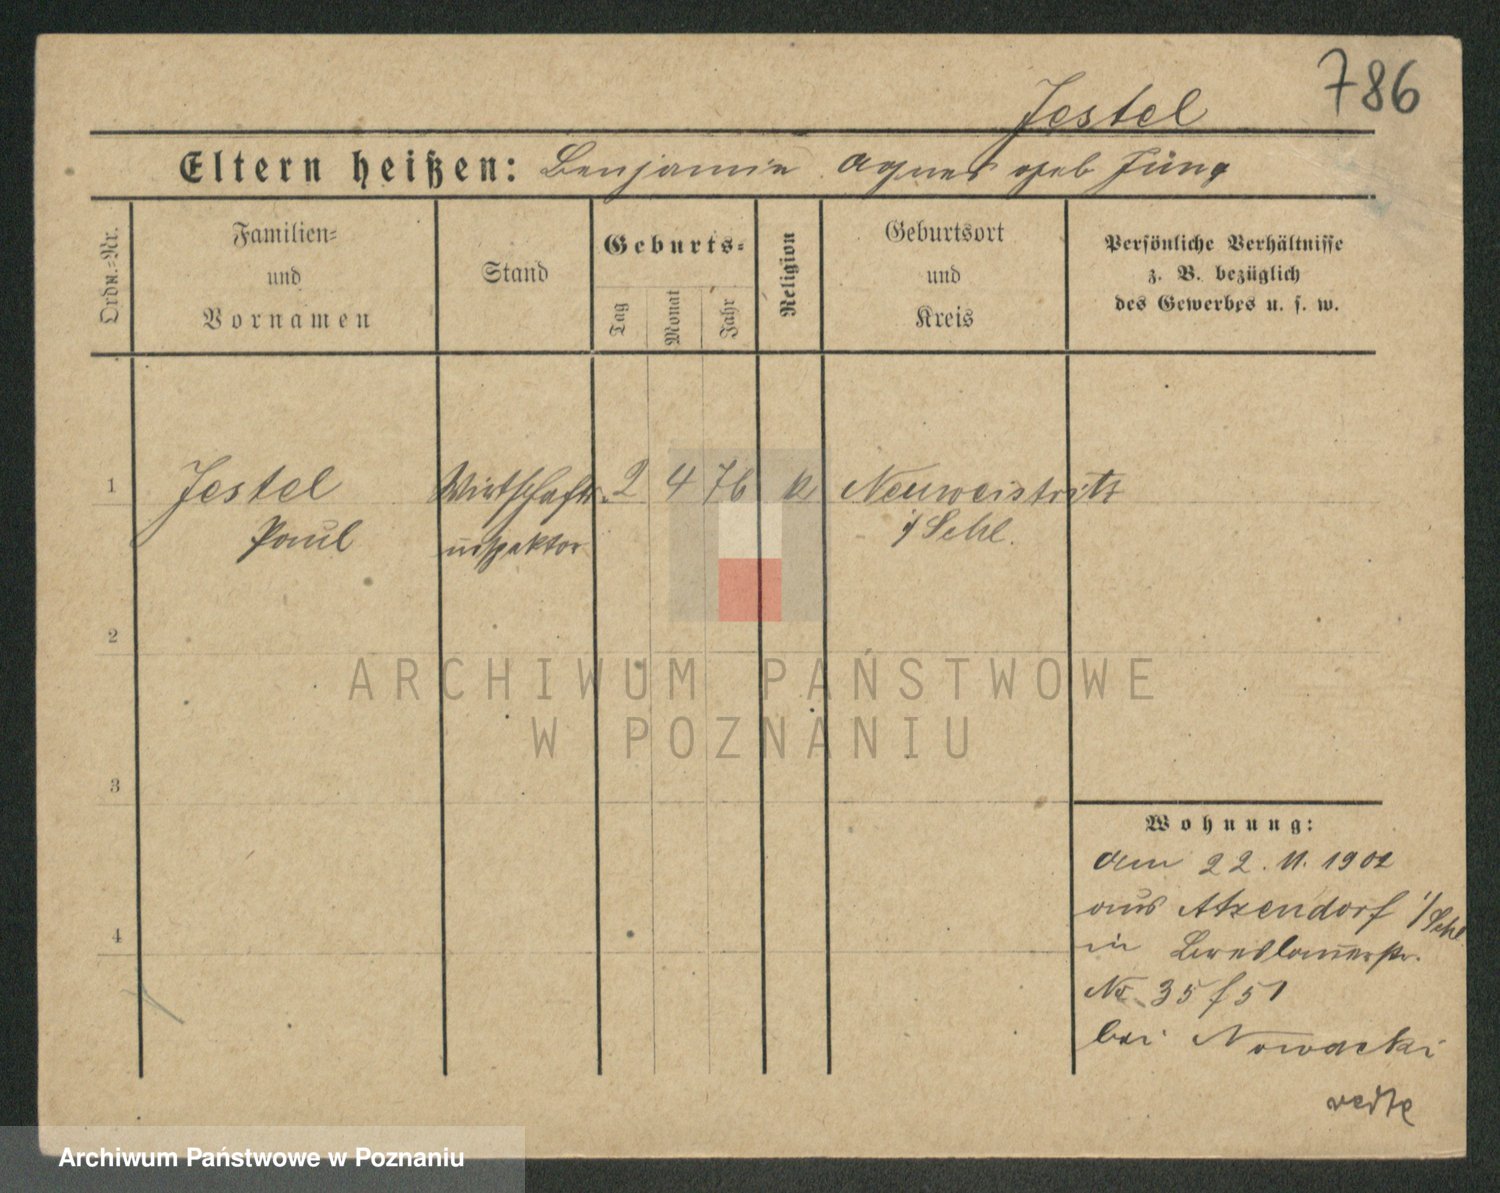 786
Jestel
Eltern heißen: Benjamin Agnes geb Jüng
Ordn.-Nr.
Familien-
und
Vornamen
Stand
Geburts-
Tag
Monat
Jahr
Religion
Geburtsort
und
Kreis
Persönliche Verhältnisse
z. B. bezüglich
des Gewerbes u. s. w.
1 Jestel Wirtschafts. 2 4 76 k Neuweistritz
Paul inspektor i/Schl.
2
ARCHIWUM PAŃSTWOWE
W POZNANIU
3
Wohnung:
den 22. 11. 1902
aus Atzendorf i/Schl
4
in Breslauerstr.
No 35/51
bei Nowacki
Archiwum Państwowe w Poznaniu